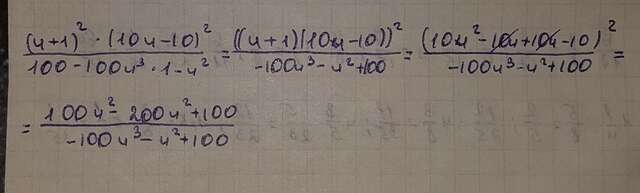 (u+1)² · (10u-10)² / 100-100u³ · 1-u² = ((u+1)(10u-10))² / -100u³-u²+100 = (10u²-10u+10u-10)² / -100u³-u²+100 =
= 100u²-200u²+100 / -100u³-u²+100